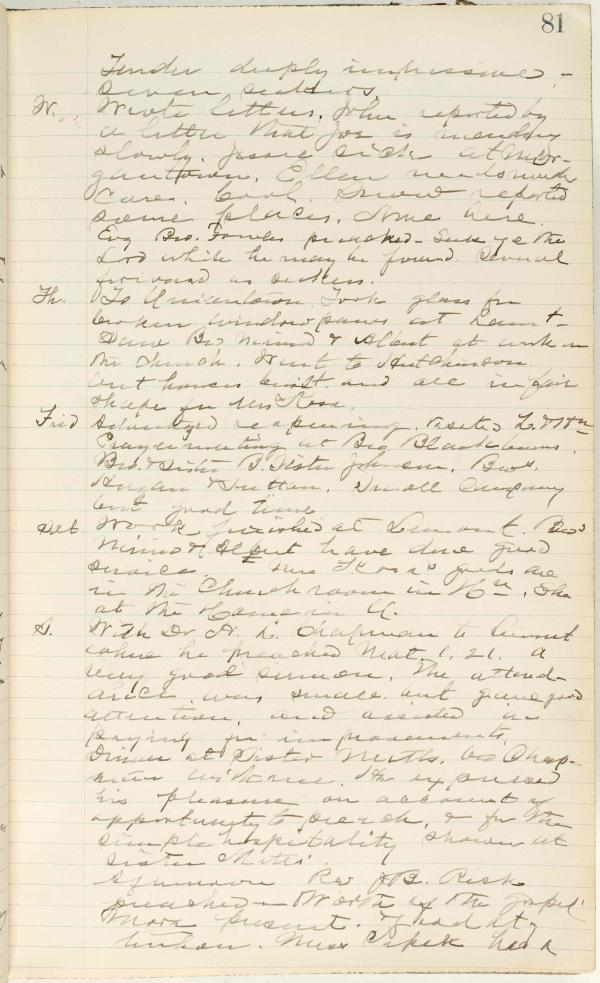 81
Tender deeply impressive -
seven seekers.
W. Wrote letters. John reported by
a letter that Joe is mending
slowly. Jessie sick at Mor-
gantown. Ellen needs much
care. Cool. Snow reported
some places. Some here.
Evg Bro. Fowler preached - Seek ye the
Lord while he may be found. Several
forward as seekers.
Th. To Uniontown. Took glass for
broken window panes at Lemt -
Saw Bro Nimmo & Albert at work on
the church. Went to Hutchinson
out houses built and all in fair
shape for Mrs Ross.
Frid reopening. Visited L. & Hn
Prayermeeting at Bro Blackburns.
Bro. & Sister B. Sister Johnson. Bros.
Hogan & Dutton. Small company
but good time
Sat. Work finished at Lemont. Bros
Nimmo & Albert have done good
service. Mrs Ross's goods are
in the Church room in Hn. She
at the Home in U.
S. With Dr. A. L. Chapman to Lemont
where he preached Mat. 1. 21. a
very good sermon. The attend-
ance was small but gave good
attention, and assisted in
paying for improvements.
Dinner at Sister Mitts. Chap-
man with me. He expressed
his pleasure on account of
opportunity to preach, & for the
simple hospitality shown at
Sister Mitts'.
Afternoon Rev J B. Risk
preached - Worth of the gospel
More present. Good at-
tention. Miss had a